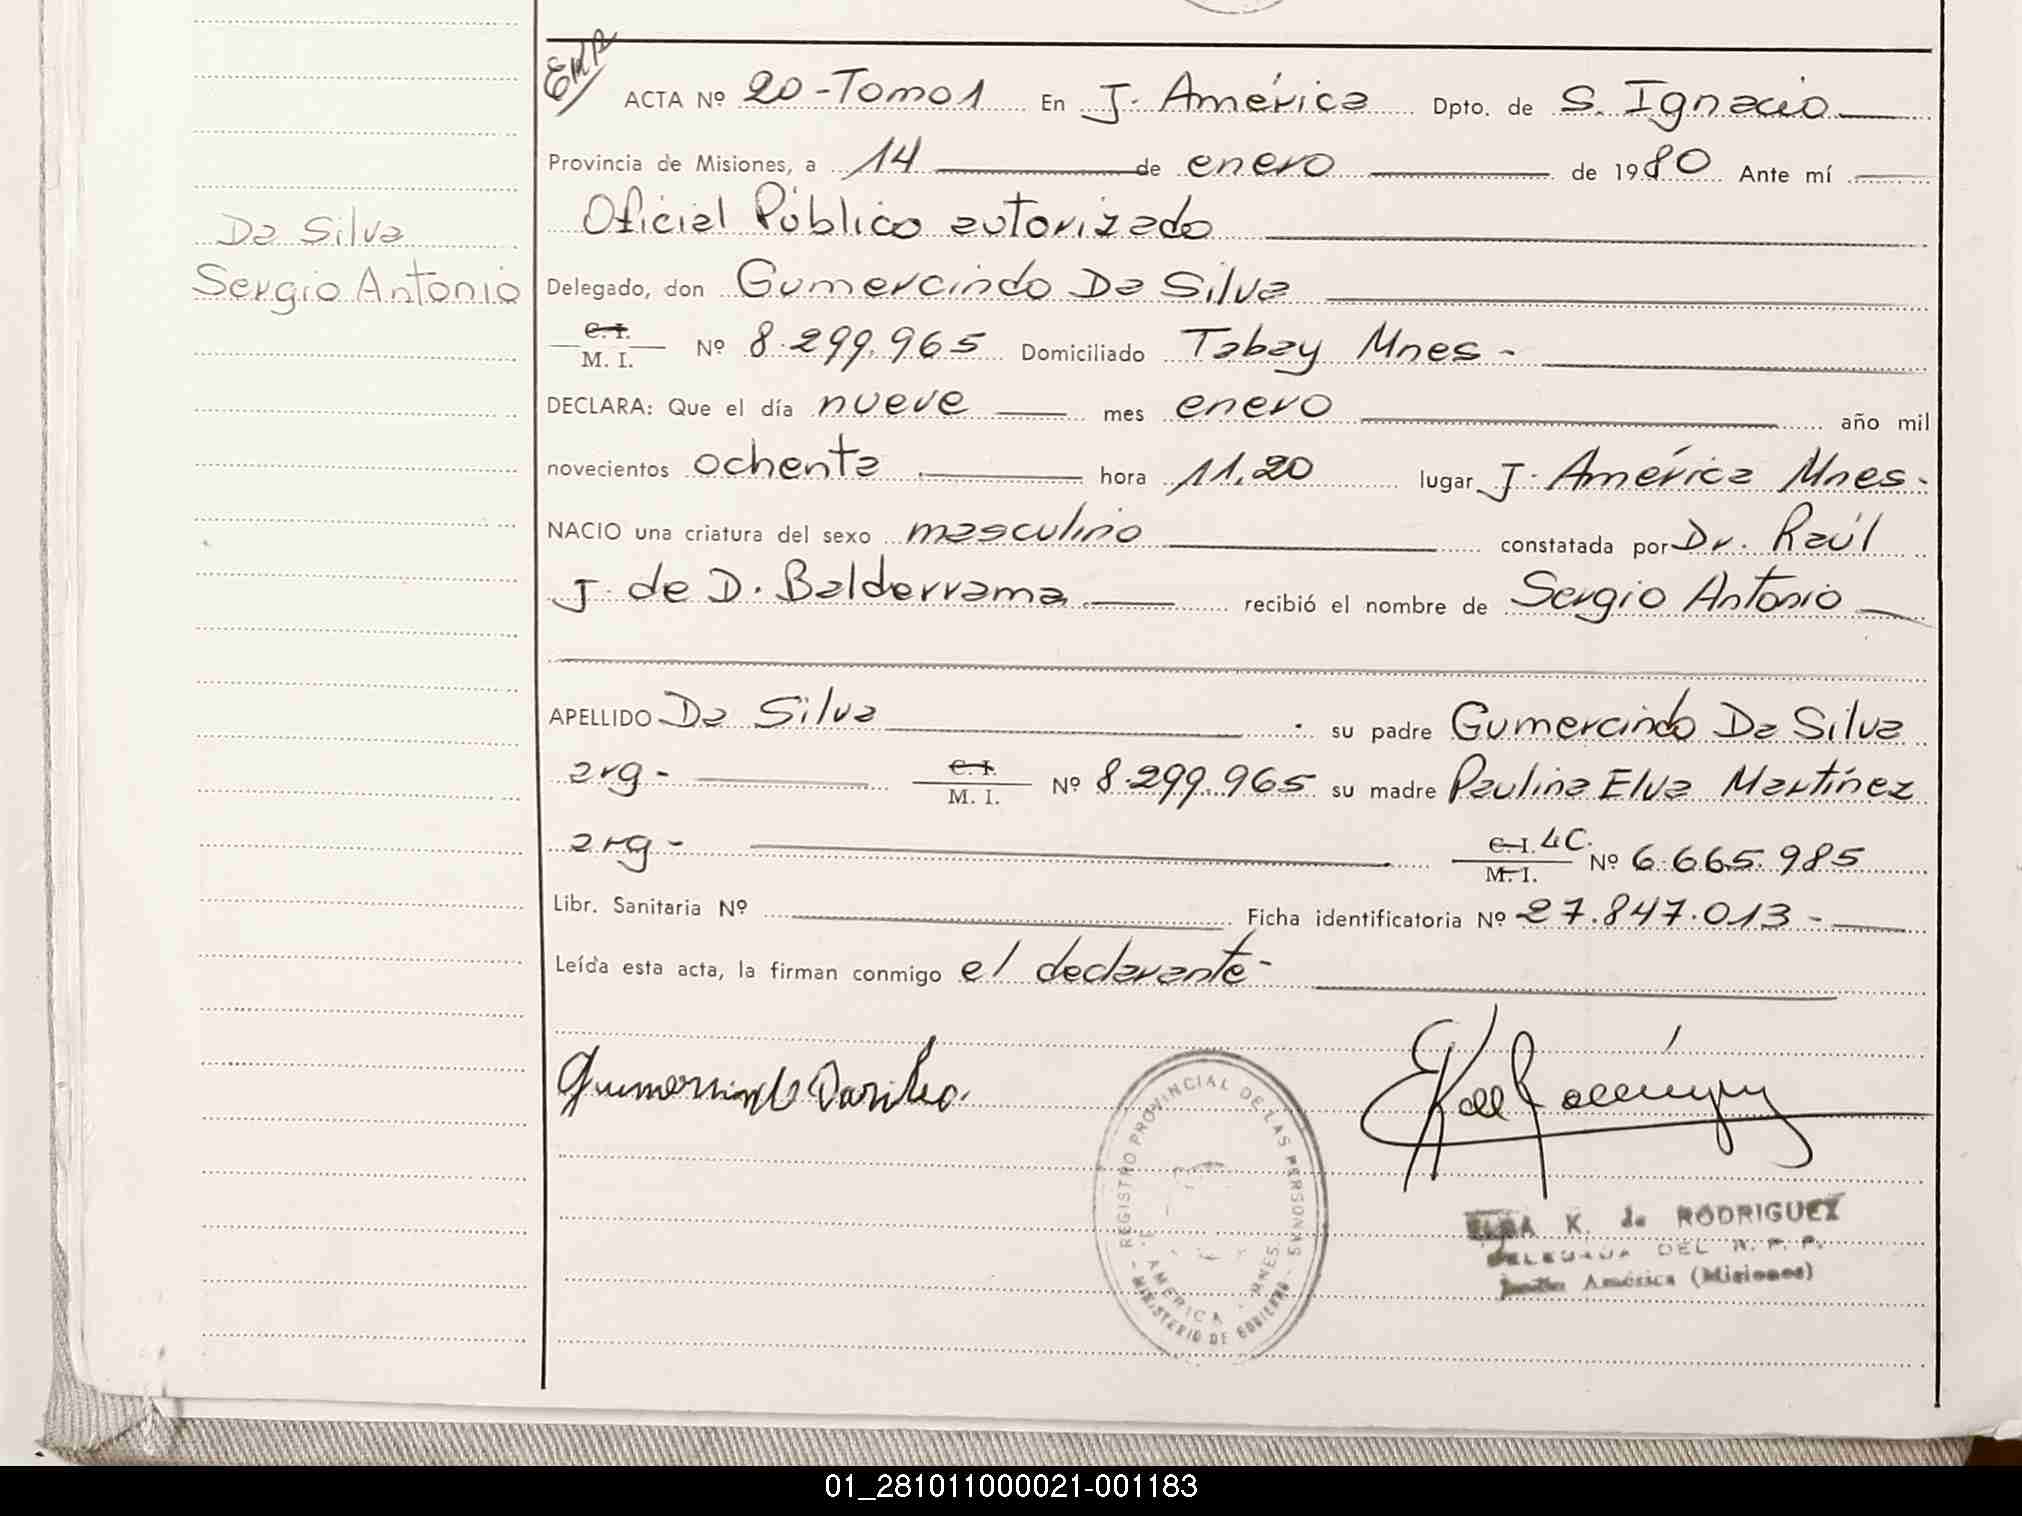 EMR
ACTA Nº 20-Tomo 1 En J. América Dpto. de S. Ignacio
Provincia de Misiones, a 14 de enero de 1980 Ante mí
Oficial Público autorizado
Da Silva
Sergio Antonio
Delegado, don Gumercindo Da Silva
C. I.
M. I. Nº 8.299.965 Domiciliado Tabay Mnes -
DECLARA: Que el día nueve mes enero año mil
novecientos ochenta hora 11,20 lugar J. América Mnes.
NACIO una criatura del sexo masculino constatada por Dr. Raúl
J. de D. Balderrama recibió el nombre de Sergio Antonio
APELLIDO Da Silva su padre Gumercindo Da Silva
arg - C. I.
M. I. Nº 8.299.965 su madre Paulina Elva Martínez
arg - C. I. LC.
M. I. Nº 6.665.985
Libr. Sanitaria Nº Ficha identificatoria Nº 27.847.013 -
Leída esta acta, la firman conmigo el declarante -
REGISTRO PROVINCIAL DE LAS PERSONAS
AMERICA - MNES.
- MINISTERIO DE GOBIERNO -
ELBA K. de RODRIGUEZ
DELEGADA DEL R. P. P.
Jardín América (Misiones)
01_281011000021-001183